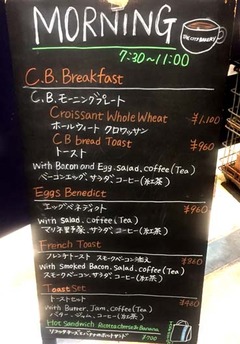 MORNING
THE CITY BAKERY
7:30~11:00
C.B. Breakfast
C.B.モーニングプレート
Croissant Whole Wheat ¥1,100
ホールウィート クロワッサン
CB bread Toast ¥960
トースト
with Bacon and Egg, salad, coffee (Tea)
ベーコンエッグ、サラダ、コーヒー(紅茶)
Eggs Benedict
エッグベネディクト ¥960
with salad, coffee (Tea)
サラダ、コーヒー(紅茶)
French Toast
フレンチトースト スモークベーコン ¥860
with Smoked Bacon, Salad, coffee (Tea)
スモークベーコン、サラダ、コーヒー(紅茶)
Toast Set
トーストセット
with Butter, Jam, coffee (Tea)
バター、ジャム、コーヒー(紅茶)
Hot Sandwich Ricotta cheese & Banana
リコッタチーズとバナナのホットサンド